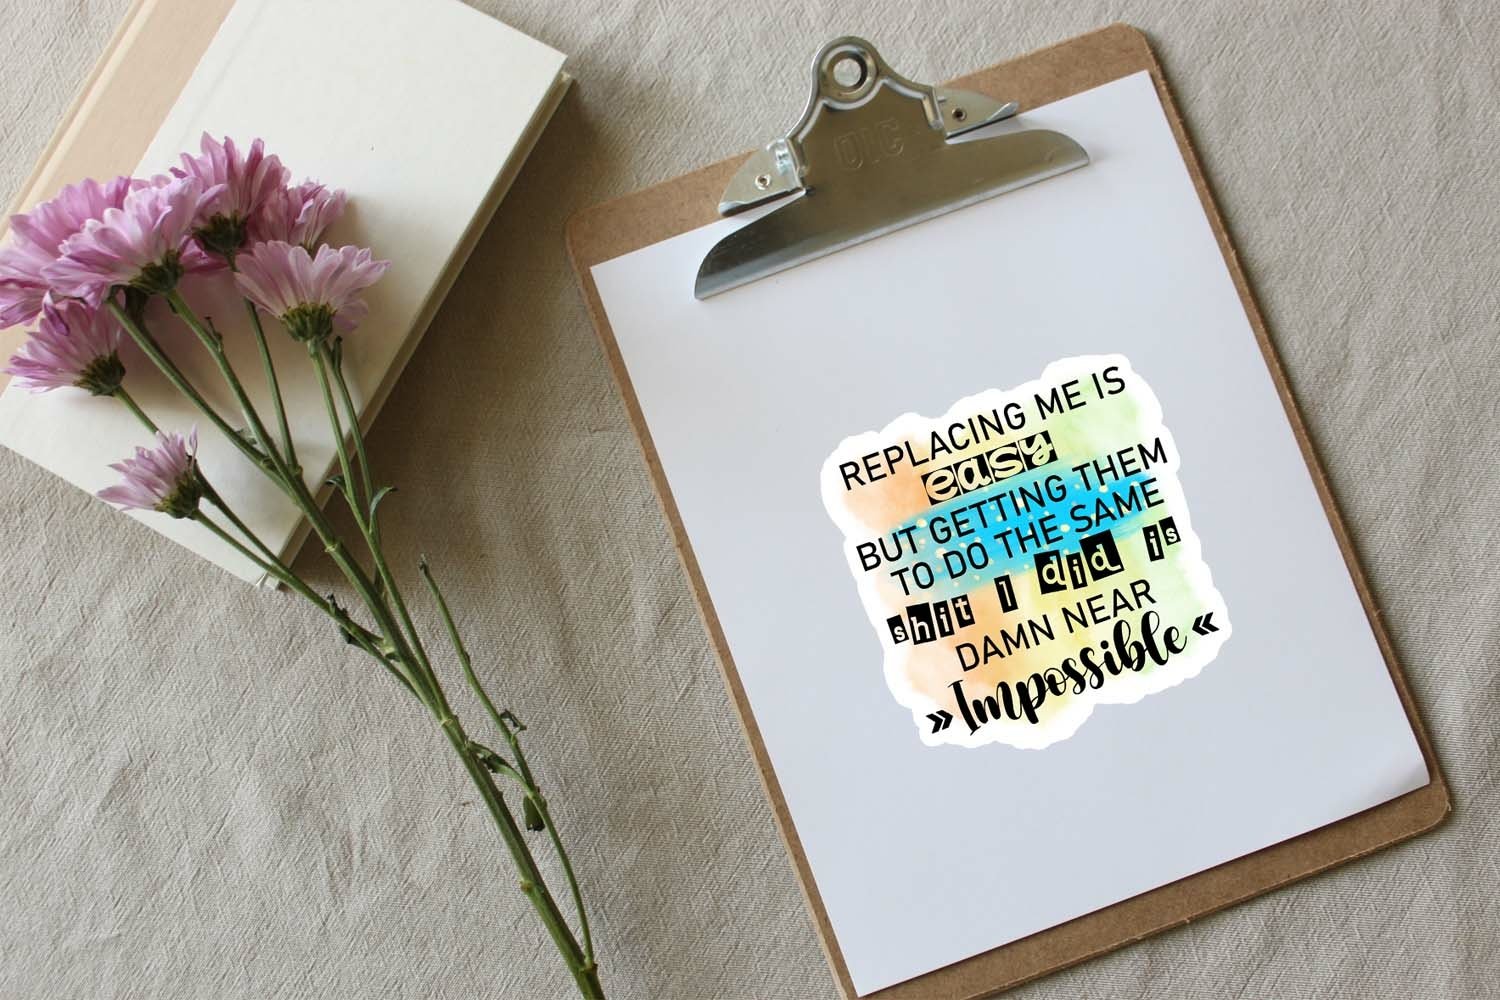 OIC
REPLACING ME IS
easy
BUT GETTING THEM
TO DO THE SAME
shit I did is
DAMN NEAR
» Impossible «